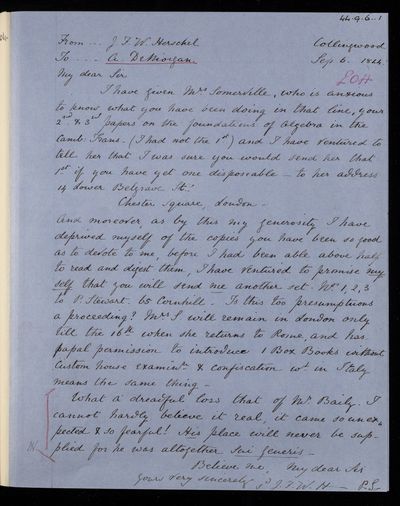 44.9.6..1
From ... J. F. W. Herschel Collingwood
To ..... A. DeMorgan Sep. 6. 1844
LOH
My dear Sir
I have given Mrs Somerville, who is anxious
to know what you have been doing in that line, your
2nd & 3rd papers on the foundations of Algebra in the
Camb: Trans. (I had not the 1st) and I have ventured to
tell her that I was sure you would send her that
1st if you have yet one disposeable – to her address
14 Lower Belgrave St.
Chester Square, London –
And moreover as by this my generosity I have
deprived myself of the copies you have been so good
as to devote to me, before I had been able above half
to read and digest them, I have ventured to promise my
self that you will send me another set. Nos. 1, 2, 3
to P. Stewart. 65 Cornhill. Is this too presumptuous
a proceeding? Mrs S will remain in London only
till the 16th when she returns to Rome, and has
papal permission to introduce 1 Box Books without
Custom house examinn. & confiscation wh. in Italy
means the same thing –
What a dreadful loss that of Mr. Baily. I
cannot hardly believe it real, it came so unex-
pected & so fearful! His place will never be sup-
plied for he was altogether Sui generis –
Believe me, My dear Sir
yours very sincerely J. F. W. H – P.S.